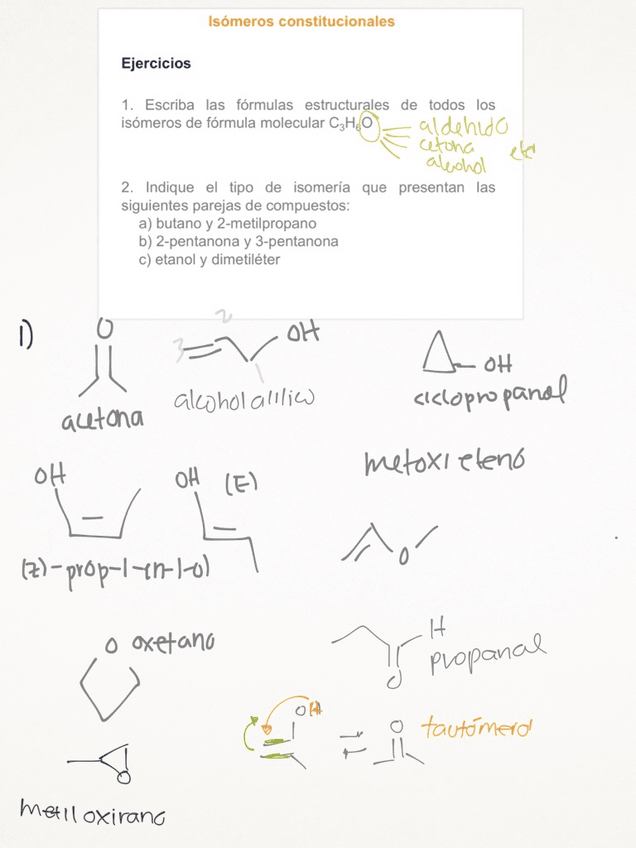 Isómeros constitucionales
Ejercicios
1. Escriba las fórmulas estructurales de todos los
isómeros de fórmula molecular C₃H₆O
aldehido
cetona
alcohol
etc
2. Indique el tipo de isomería que presentan las
siguientes parejas de compuestos:
a) butano y 2-metilpropano
b) 2-pentanona y 3-pentanona
c) etanol y dimetiléter
1)
O
acetona
3
2
1
OH
alcohol alílico
OH
ciclopropanol
OH
OH (E)
(Z)-prop-1-en-1-ol
metoxi eteno
O
O oxetano
H
O
propanal
OH
O
tautómero
O
metil oxirano